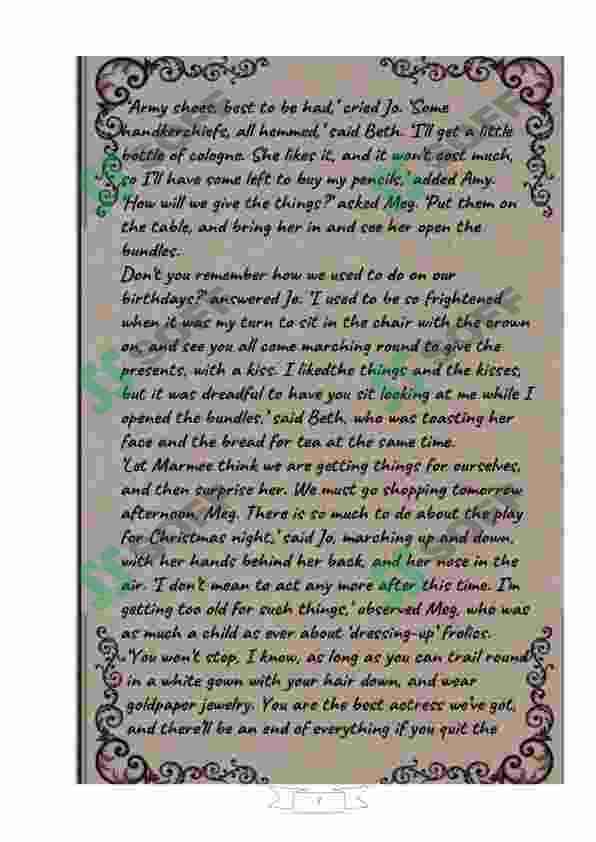 'Army shoes, best to be had,' cried Jo. 'Some
handkerchiefs, all hemmed,' said Beth. 'I'll get a little
bottle of cologne. She likes it, and it won't cost much,
so I'll have some left to buy my pencils,' added Amy.
'How will we give the things?' asked Meg. 'Put them on
the table, and bring her in and see her open the
bundles.
Don't you remember how we used to do on our
birthdays?' answered Jo. 'I used to be so frightened
when it was my turn to sit in the chair with the crown
on, and see you all come marching round to give the
presents, with a kiss. I likedthe things and the kisses,
but it was dreadful to have you sit looking at me while I
opened the bundles,' said Beth, who was toasting her
face and the bread for tea at the same time.
'Let Marmee think we are getting things for ourselves,
and then surprise her. We must go shopping tomorrow
afternoon, Meg. There is so much to do about the play
for Christmas night,' said Jo, marching up and down,
with her hands behind her back, and her nose in the
air. 'I don't mean to act any more after this time. I'm
getting too old for such things,' observed Meg, who was
as much a child as ever about 'dressing-up' frolics.
'You won't stop, I know, as long as you can trail round
in a white gown with your hair down, and wear
goldpaper jewelry. You are the best actress we've got,
and there'll be an end of everything if you quit the